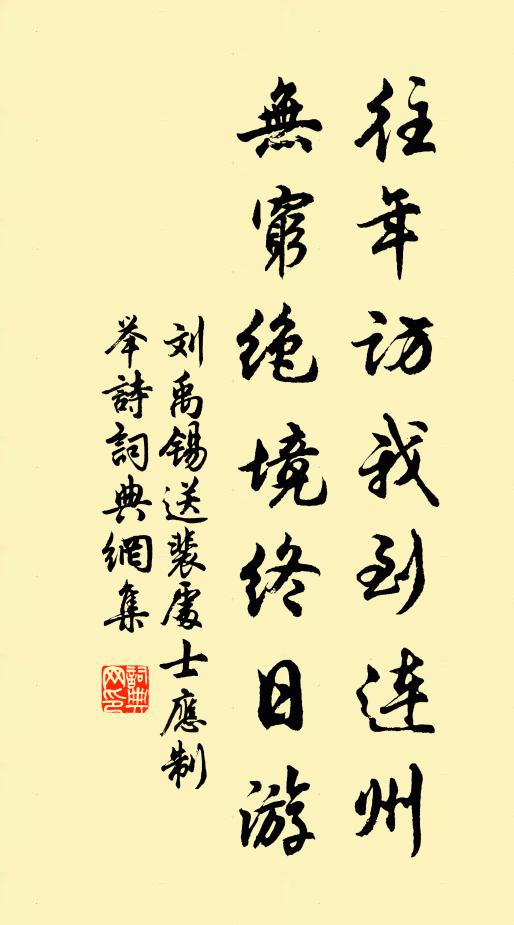 往年访我到连州
無窮绝境终日游
刘禹锡送裴處士應制
举詩詞典網集
詞典网印